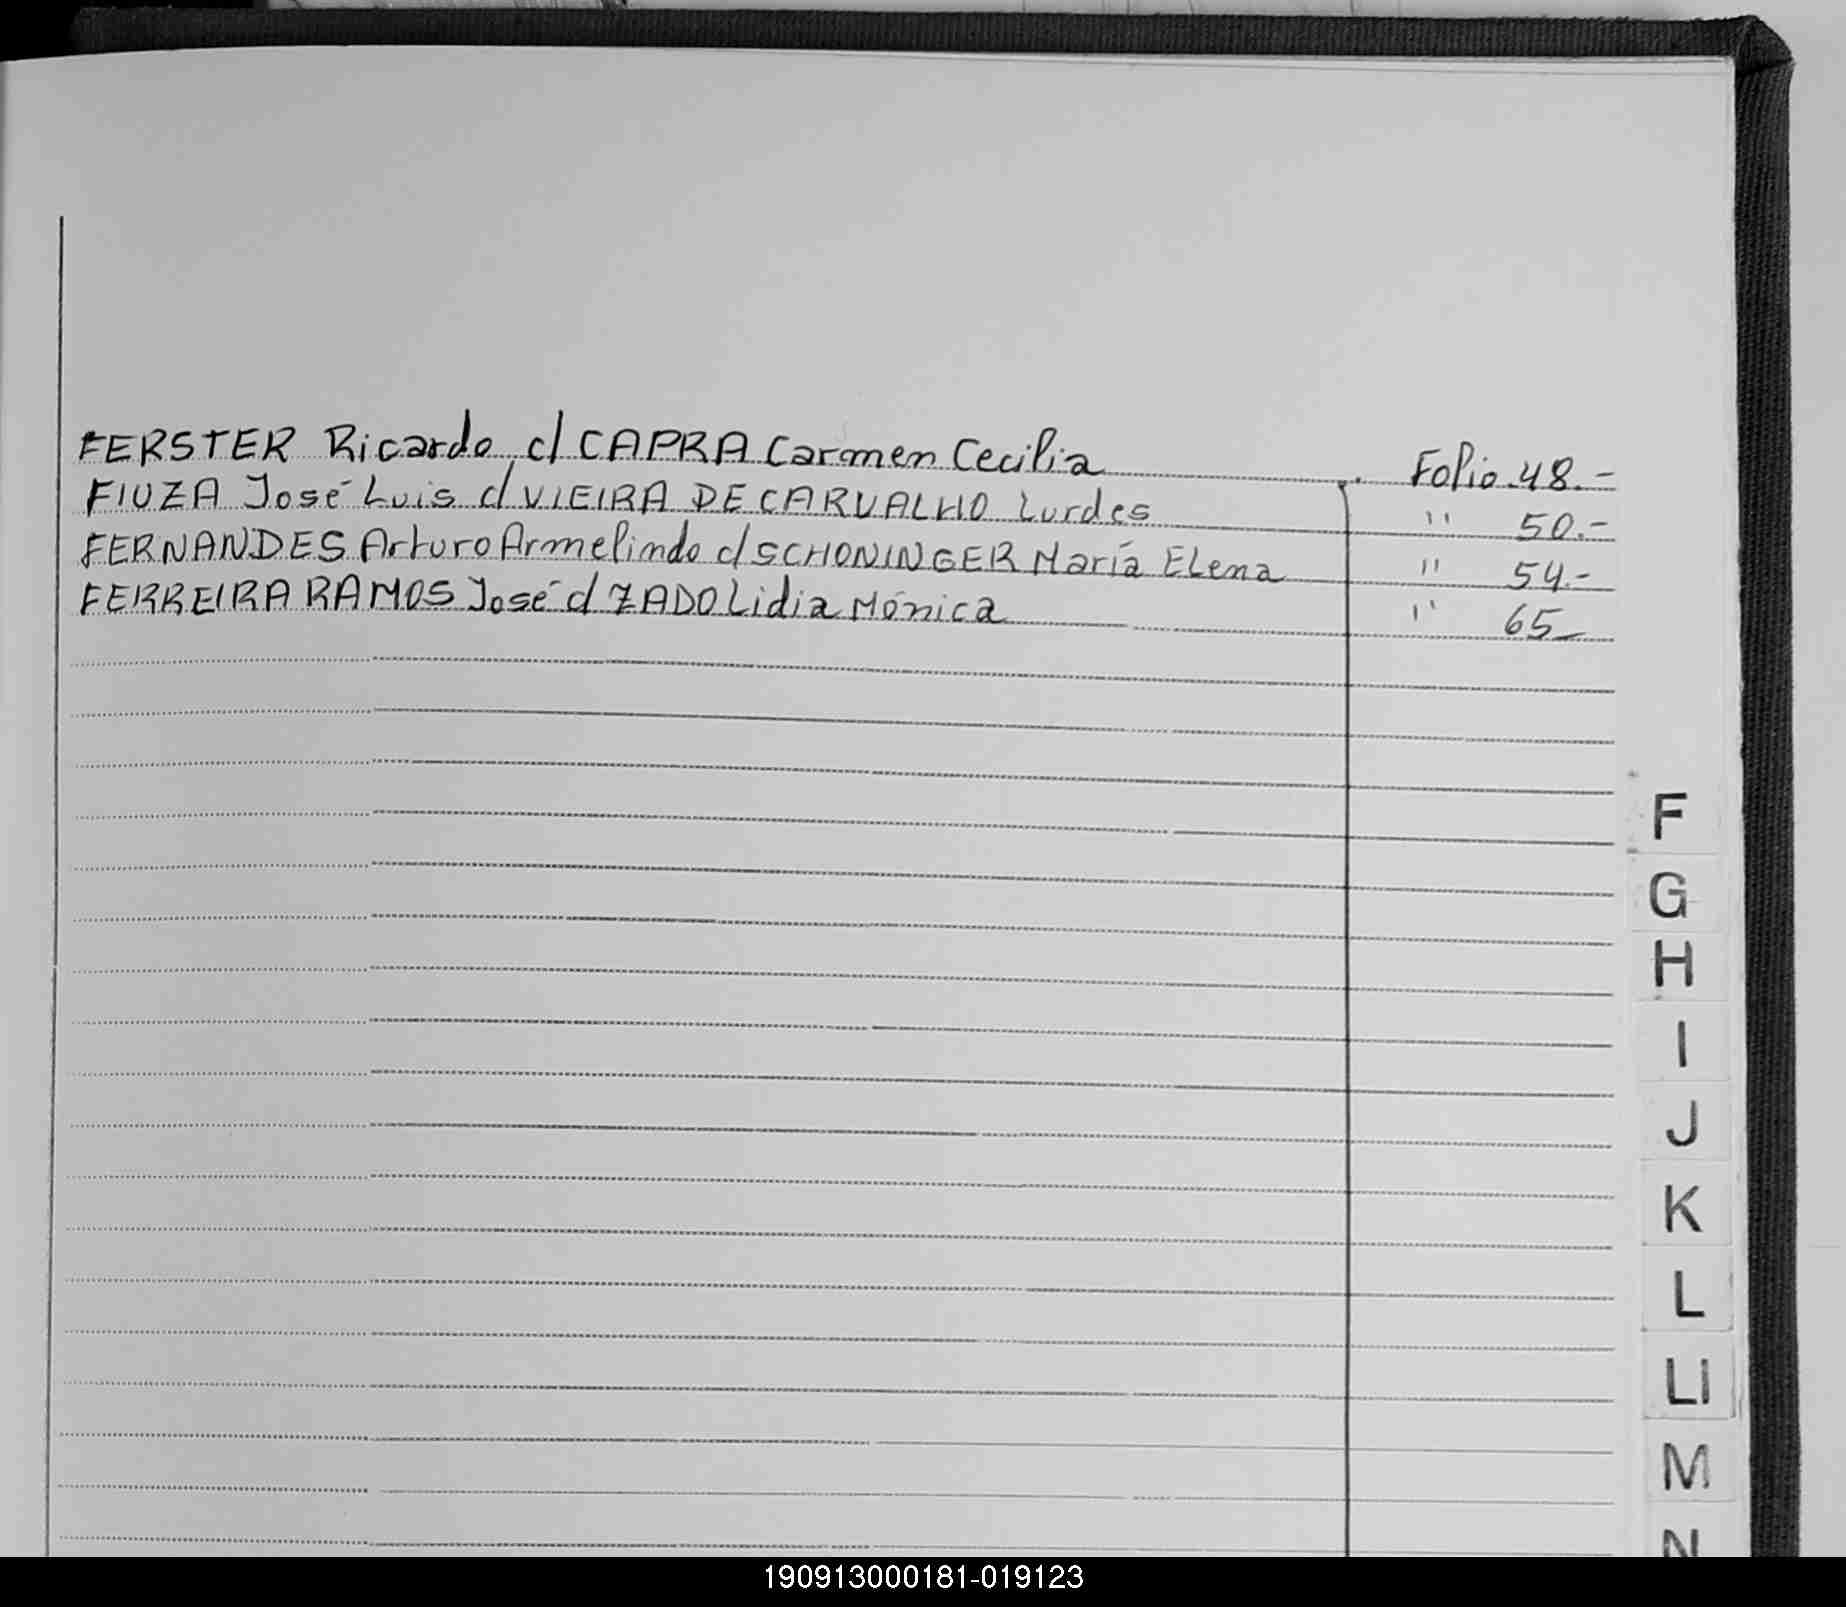 FERSTER Ricardo, c/ CAPRA Carmen Cecilia Folio 48.-
FIUZA José Luis c/ VIEIRA DE CARVALHO Lurdes " 50.-
FERNANDES Arturo Armelindo c/ SCHONINGER María Elena " 54.-
FERREIRA RAMOS José c/ ZADO Lidia Mónica " 65-
F
G
H
I
J
K
L
Ll
M
N
190913000181-019123